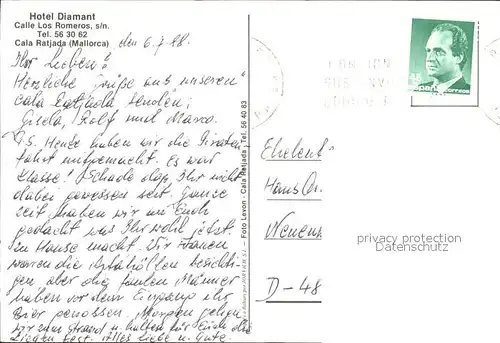 Hotel Diamant
Calle Los Romeros, s/n.
Tel. 56 30 62
Cala Ratjada (Mallorca)
den 6.7.88.
Ihr Lieben!
Herzliche Grüße aus unseren
Cala Ratjada senden,
Gisela, Rolf und Marco.
P.S. Heute haben wir die Piraten
fahrt mitgemacht. Es war
Klasse! Schade daß Ihr nicht
dabei gewesen seit. Ganze
zeit haben wir an Euch
gedacht was Ihr wohl jetzt
zu Hause macht. Wir Frauen
waren die besichti-
gen aber die faulen Männer
haben vor dem Eingang ihr
Bier genossen. Morgen gehen
wir zum Strand u. halten für Euch die
Liegen fest. Alles Liebe u. Gute.
Foto Levon - Cala Ratjada - Tel. 56 40 83
España correos
Eheleut
Hans
D-48
privacy protection
Datenschutz